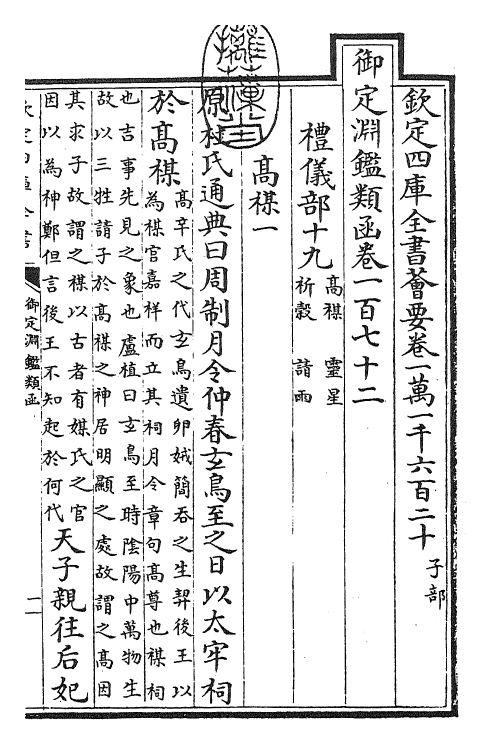 欽定四庫全書薈要卷一萬一千六百二十 子部
御定淵鑑類函卷一百七十二
禮儀部十九 高禖 靈星
祈穀 請雨
高禖一
原杜氏通典曰周制月令仲春玄鳥至之日以太牢祠
於高禖 高辛氏之代玄鳥遺卵娀簡吞之生契後王以
為禖官嘉祥而立其祠月令章句高尊也禖祠
也吉事先見之象也盧植曰玄鳥至時陰陽中萬物生
故以三牲請子於高禖之神居明顯之處故謂之高因
其求子故謂之禖以古者有媒氏之官
因以為神鄭但言後王不知起於何代 天子親往后妃
御定淵鑑類函
一